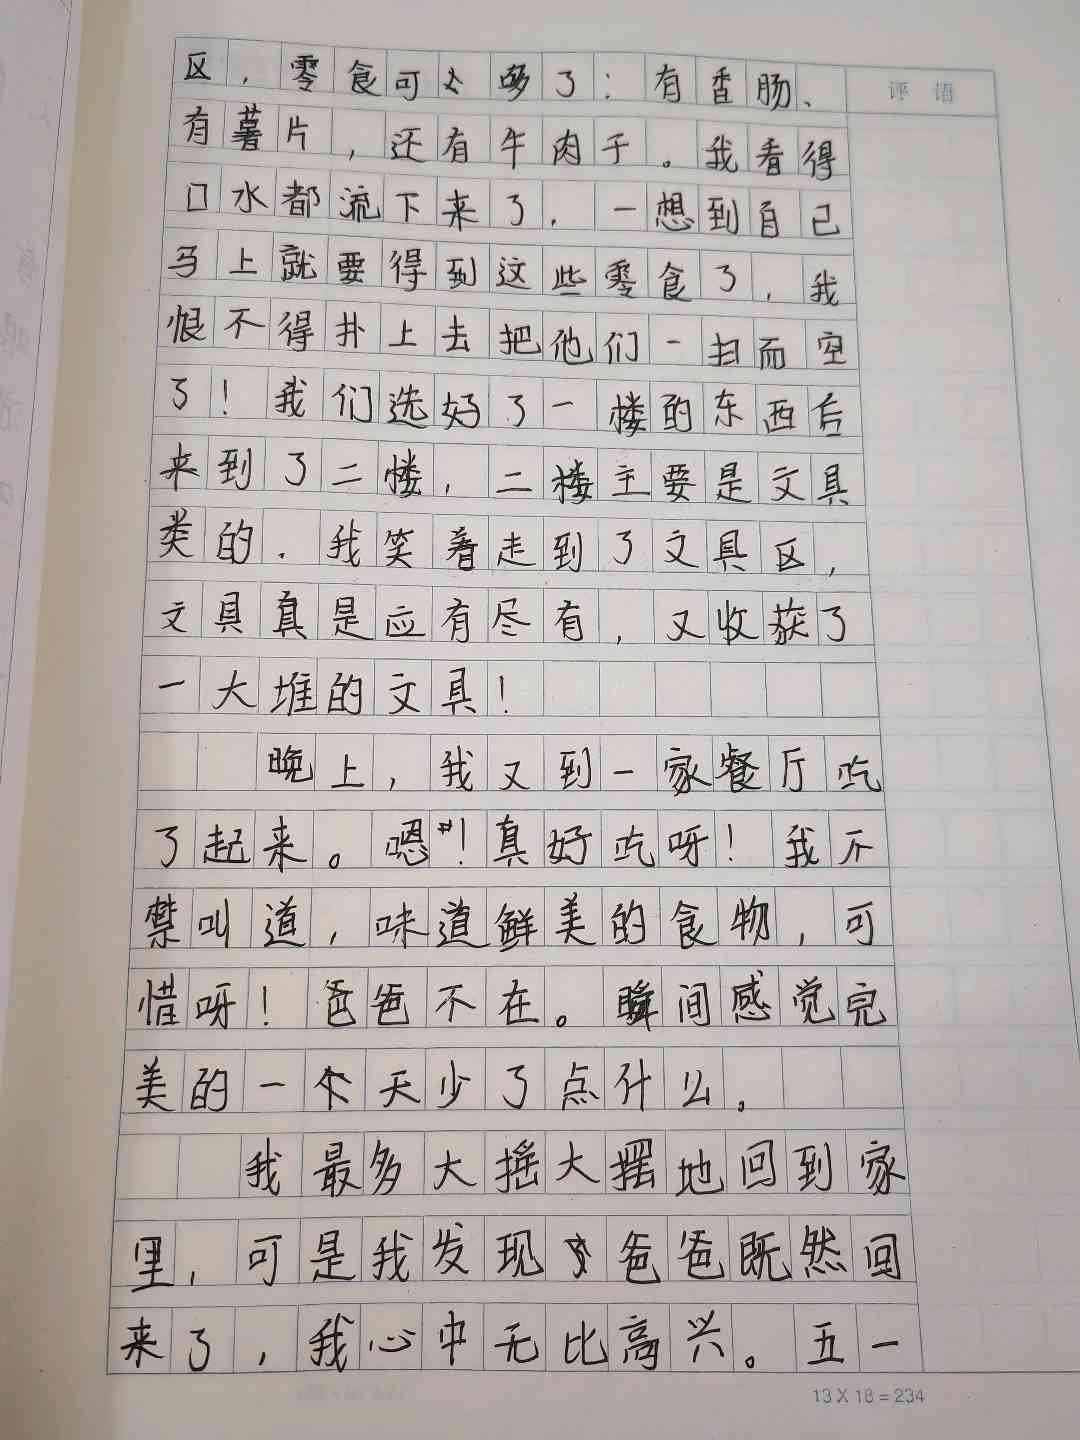 区，零食可太多了：有香肠、
评 语
有薯片，还有牛肉干。我看得
口水都流下来了，一想到自己
马上就要得到这些零食了，我
恨不得扑上去把他们一扫而空
了！我们选好了一楼的东西后
来到了二楼，二楼主要是文具
类的．我笑着走到了文具区，
文具真是应有尽有，又收获了
一大堆的文具！
晚上，我又到一家餐厅吃
了起来。嗯！真好吃呀！我不
禁叫道，味道鲜美的食物，可
惜呀！爸爸不在。瞬间感觉完
美的一个天少了点什么。
我最多大摇大摆地回到家
里，可是我发现爸爸既然回
来了，我心中无比高兴。五一
13 X 18 = 234